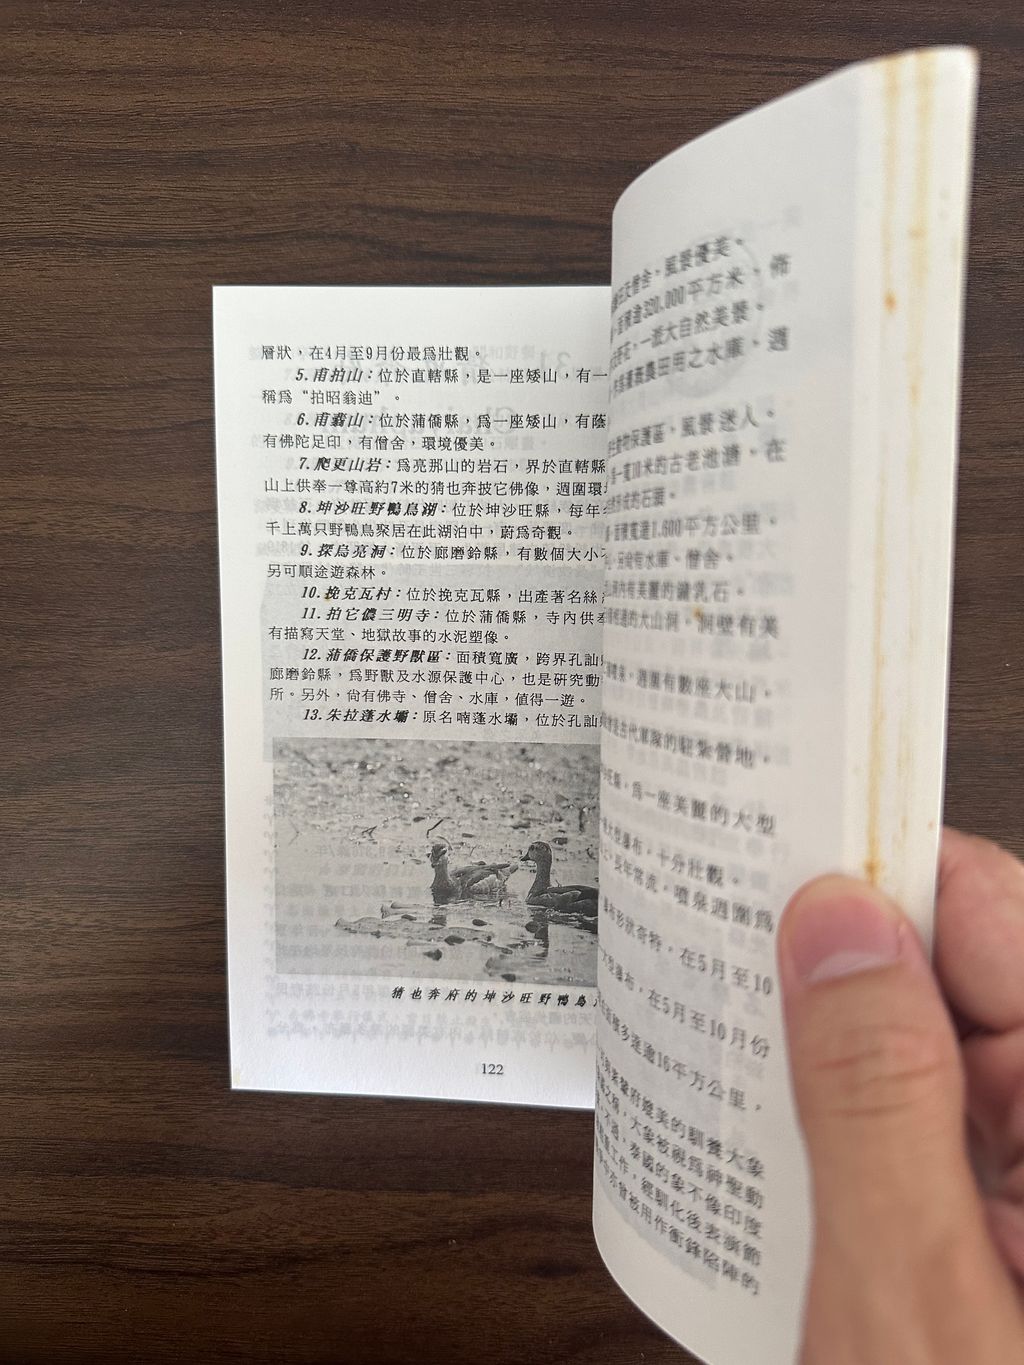 層狀，在4月至9月份最爲壯觀。
5.甫拍山：位於直轄縣，是一座矮山，有一
稱爲“拍昭翁迪”。
6.甫翡山：位於蒲僑縣，爲一座矮山，有蔭
有佛陀足印，有僧舍，環境優美。
7.爬更山岩：爲亮那山的岩石，界於直轄縣
山上供奉一尊高約7米的猜也奔披它佛像，週圍環
8.坤沙旺野鴨鳥湖：位於坤沙旺縣，每年
千上萬只野鴨鳥聚居在此湖泊中，蔚爲奇觀。
9.探烏亮洞：位於廊磨鈴縣，有數個大小
另可順途遊森林。
10.挽克瓦村：位於挽克瓦縣，出產著名絲
11.拍它儂三明寺：位於蒲僑縣，寺內供奉
有描寫天堂、地獄故事的水泥塑像。
12.蒲僑保護野獸區：面積寬廣，跨界孔訕
廊磨鈴縣，爲野獸及水源保護中心，也是研究動
所。另外，尙有佛寺、僧舍、水庫，値得一遊。
13.朱拉蓬水壩：原名喃蓬水壩，位於孔訕
猜也奔府的坤沙旺野鴨鳥
122
及僧舍，風景優美。
面積逾320,000平方米，佈
一派大自然美景。
農田用之水庫，週
物保護區，風景迷人。
一寬10米的古老池塘，在
形成的石頭。
面積寬達1,600平方公里，
另尚有水庫、僧舍。
洞內有美麗的鐘乳石。
相連的大山洞，洞壁有美
噴泉，週圍有數座大山。
是古代軍隊的駐紮營地。
爲一座美麗的大型
大型瀑布，十分壯觀。
長年常流，噴泉週圍爲
瀑布形狀奇特，在5月至10
大型瀑布，在5月至10月份
面積多達逾16平方公里，
與素輦府媲美的馴養大象
之稱，大象被視爲神聖動
不過，泰國的象不像印度
工作，經馴化後表演節
亦曾被用作衝鋒陷陣的